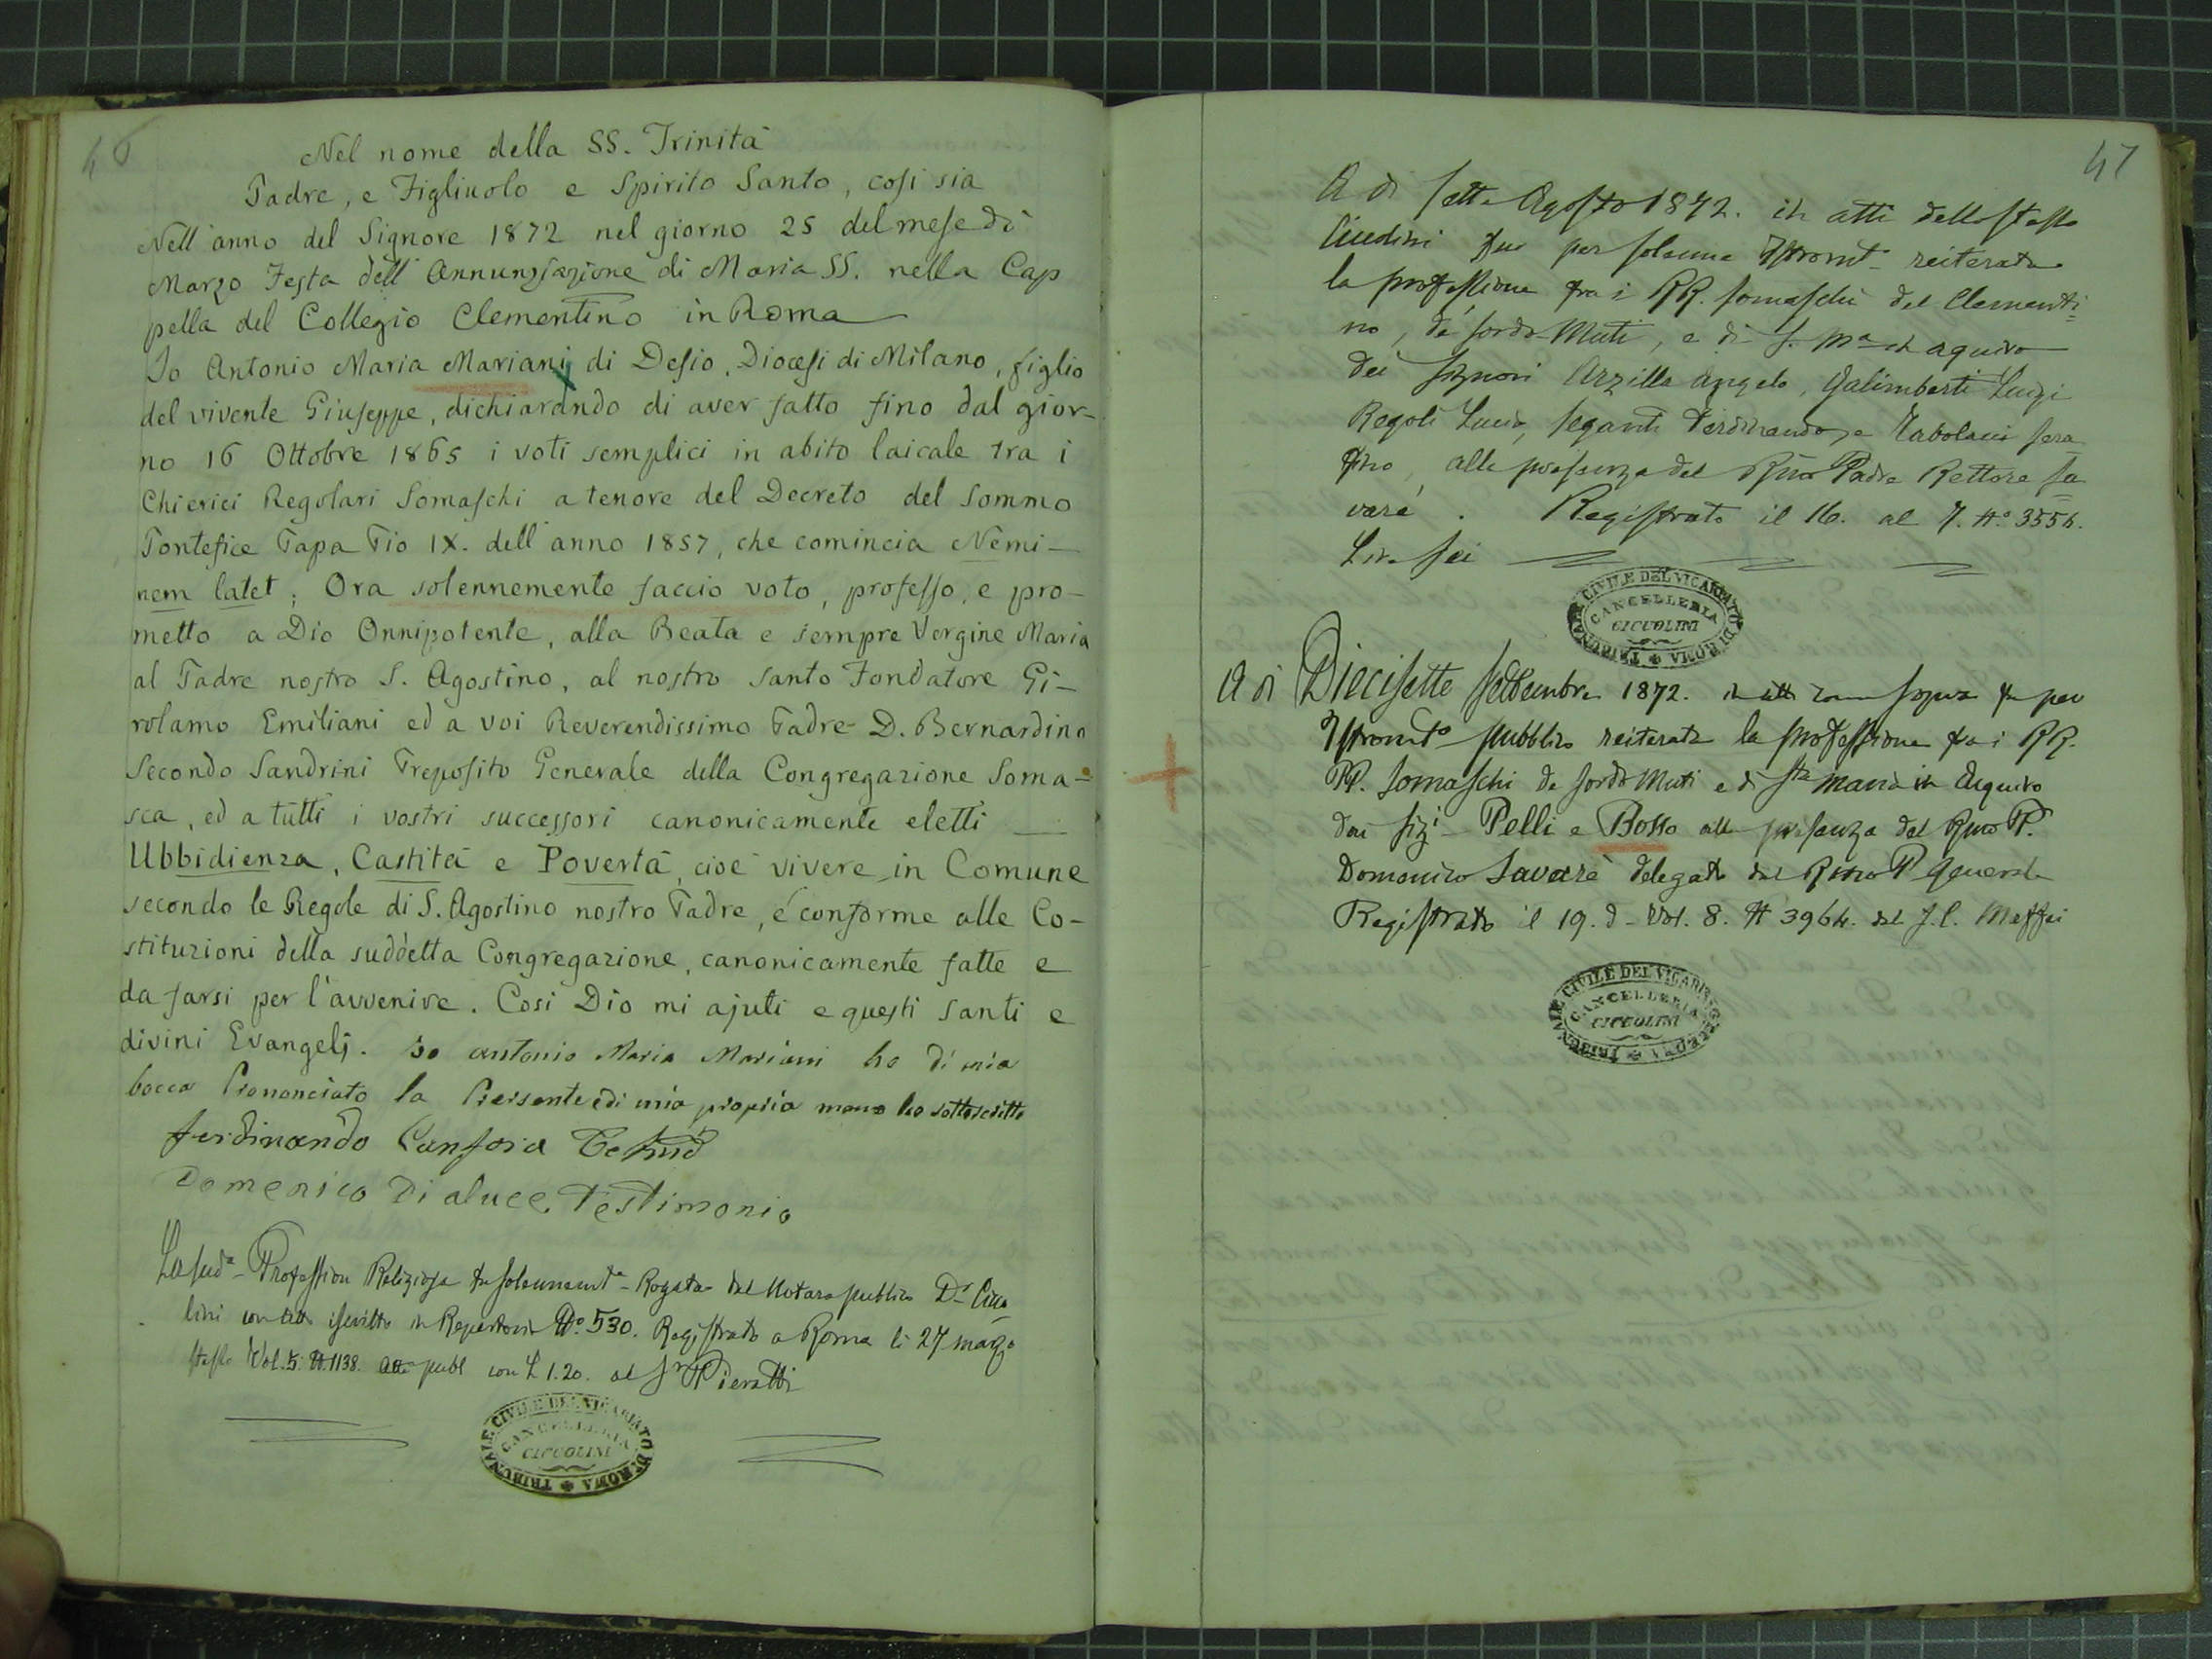 46
Nel nome della SS. Trinità
Padre, e Figliuolo e Spirito Santo, così sia
Nell'anno del Signore 1872 nel giorno 25 del mese di
Marzo Festa dell'Annunziazione di Maria SS. nella Cap
pella del Collegio Clementino in Roma
Io Antonio Maria Mariani di Desio, Diocesi di Milano, figlio
del vivente Giuseppe, dichiarando di aver fatto fino dal gior-
no 16 Ottobre 1865 i voti semplici in abito laicale tra i
Chierici Regolari Somaschi a tenore del Decreto del Sommo
Pontefice Papa Pio IX. dell'anno 1857, che comincia Nemi-
nem latet; Ora solennemente faccio voto, professo, e pro-
metto a Dio Onnipotente, alla Beata e sempre Vergine Maria
al Padre nostro S. Agostino, al nostro Santo Fondatore Gi-
rolamo Emiliani ed a voi Reverendissimo Padre D. Bernardino
Secondo Sandrini Preposito Generale della Congregazione Soma-
sca, ed a tutti i vostri successori canonicamente eletti
Ubbidienza, Castità e Povertà, cioè vivere in Comune
secondo le Regole di S. Agostino nostro Padre, e conforme alle Co-
stituzioni della suddetta Congregazione, canonicamente fatte e
da farsi per l'avvenire. Così Dio mi ajuti e questi santi e
divini Evangelj. Io antonio Maria Mariani ho di mia
bocca Prononciato la Presente e di mia propria mano ho sottoscritto
ferdinando Canfora
Domenico Di aluce, Testimonio
La sudª Profession Religiosa fu Rogata dal Notaro pubblico Dr Cicco
lini con atto iscritto in Repertorio Nº 530. Registrato a Roma li 27 marzo
Vol. 5. N. 1138. atti publ con L 1.20. al Sr Pieratti
TRIBUNALE CIVILE DEL VICARIATO DI ROMA
CANCELLERIA
CICCOLINI
47
A di sette Agosto 1872. in atti dello stesso
fu per solenne reiterata
la professione fra i RR. Somaschi del Clementi=
no, de' sordo-Muti, e di S. Mª in aquiro
dei Signori Arzilla Angelo, Galimberti Luigi
Regoli Lucio, Seganti Ferdinando, e Sera
fino, alla presenza del Rmo Padre Rettore Sa
varé. Registrato il 16. al 7. Nº 3554.
Lire sei
TRIBUNALE CIVILE DEL VICARIATO DI ROMA
CANCELLERIA
CICCOLINI
A di Diecisette Settembre 1872. in atti come sopra fu per
pubblico reiterata la professione fra i RR.
PP. Somaschi de sordo Muti e di Sta Maria in Aquiro
dai Sigi Pelli e Bosso alla presenza del Rmo P.
Domenico Savarè delegato dal Rmo P Generale
Registrato il 19. d. Vol. 8. N 3964. dal
TRIBUNALE CIVILE DEL VICARIATO DI ROMA
CANCELLERIA
CICCOLINI